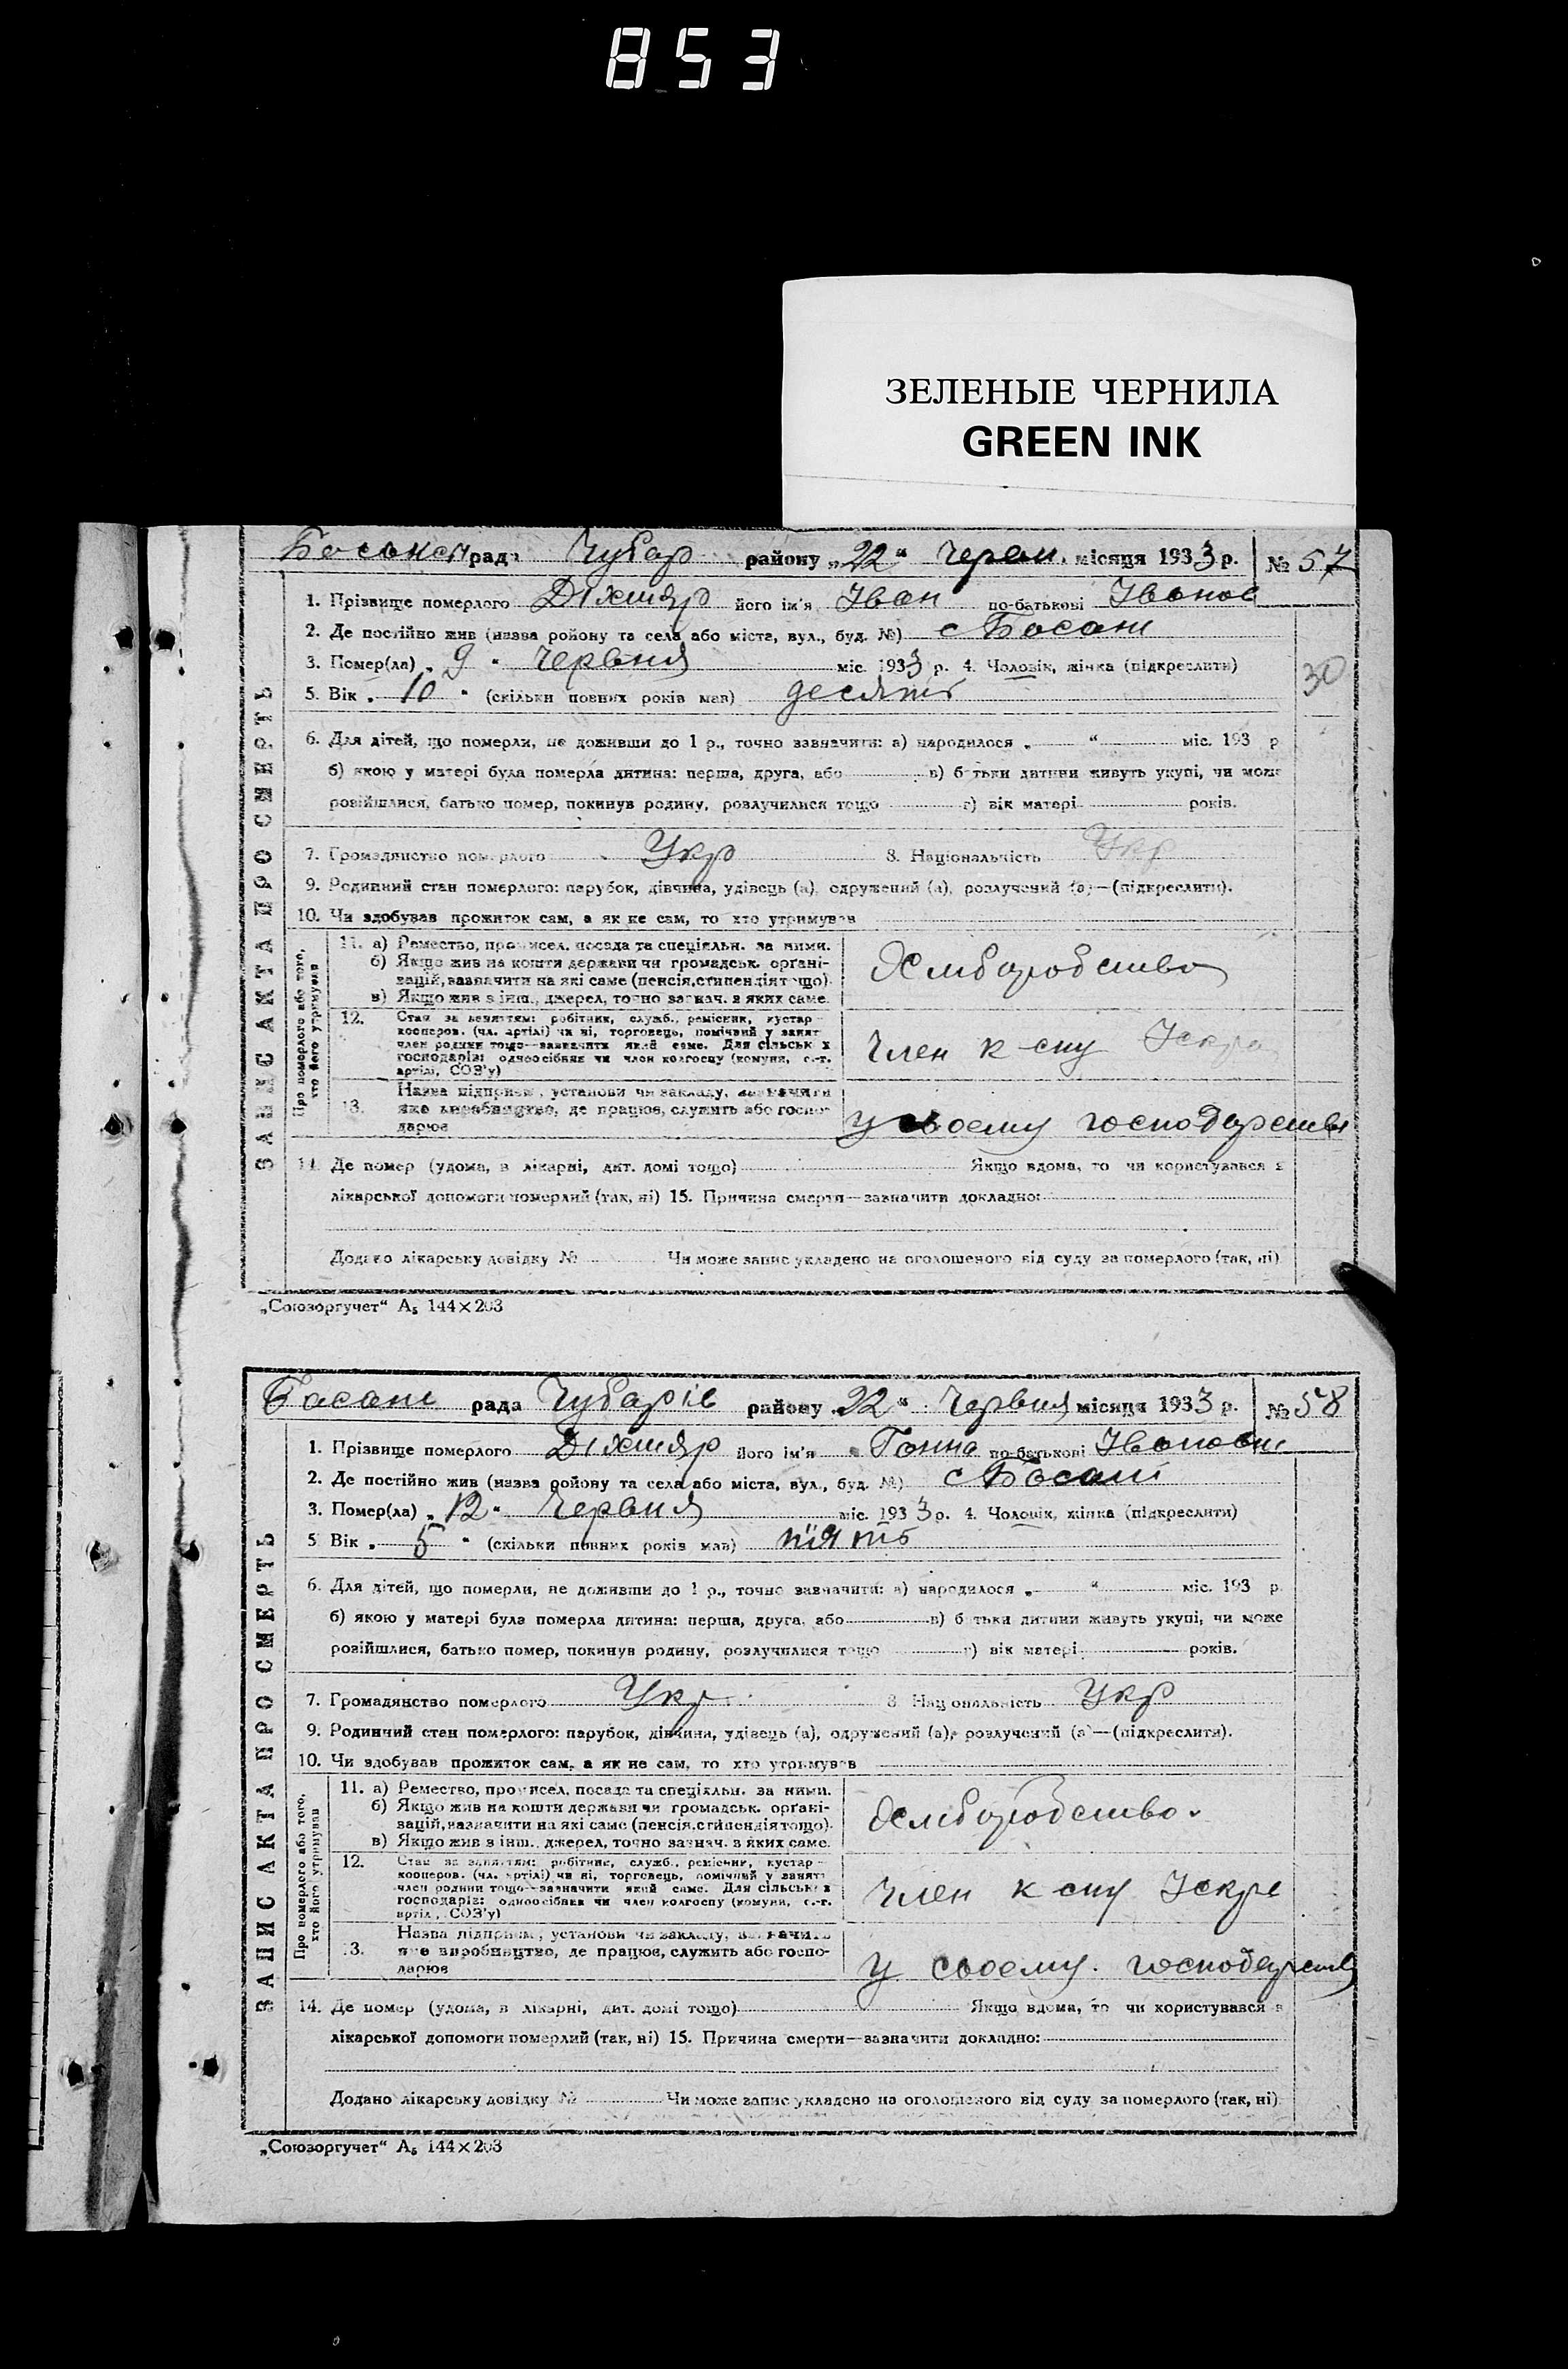 853
ЗЕЛЕНЫЕ ЧЕРНИЛА
GREEN INK
рада Чубар району „22“ Черв. місяця 1933 р. № 57
ЗАПИС АКТА ПРО СМЕРТЬ
1. Прізвище померлого Діхтяр його ім'я Іван по-батькові Іванов
2. Де постійно жив (назва ройону та села або міста, вул., буд. №) с Басань
3. Помер(ла) „9“ Червня міс. 1933 р. 4. Чоловік, жінка (підкреслити)
5. Вік „10“ (скільки повних років мав) десять
30
6. Для дітей, що померли, не доживши до 1 р., точно зазначити: а) народилося „ “ міс. 193 р
б) якою у матері була померла дитина: перша, друга, або в) батьки дитини живуть укупі, чи може
розійшлися, батько помер, покинув родину, розлучилися тощо г) вік матері років.
7. Громадянство померлого Укр 8. Національність Укр
9. Родинний стан померлого: парубок, дівчина, удівець (а), одружений (а), розлучений (а)—(підкреслити).
10. Чи здобував прожиток сам, а як не сам, то хто утримував
Про померлого або того, хто його утримував
11. а) Ремество, промисел, посада та спеціяльн. за ними.
б) Якщо жив на кошти держави чи громадськ. органі-
зацій, зазначити на які саме (пенсія, стипендія тощо).
в) Якщо жив з інш., джерел, точно зазнач. з яких саме.
Хліборобство
12. Стан за заняттям: робітник, служб., ремісник, кустар
кооперов. (чл. артілі) чи ні, торговець, помічний у занят
член родини тощо—зазначити який саме. Для сільськ х
господарів: одноосібник чи член колгоспу (комуни, с.-г.
артілі, СОЗ'у)
Член к-спу Іскра
13. Назва підприєм., установи чи закладу, зазначити
яке виробництво, де працює, служить або госпо-
дарює
у своему господарстві
14. Де помер (удома, в лікарні, дит. домі тощо) Якщо вдома, то чи користувався з
лікарської допомоги померлий (так, ні) 15. Причина смерти—зазначити докладно:
Додано лікарську довідку № Чи може запис укладено на оголошеного від суду за померлого (так, ні)
„Союзоргучет“ А₅ 144×203
Басань рада Чубарів району „22“ Червня місяця 1933 р. № 58
ЗАПИС АКТА ПРО СМЕРТЬ
1. Прізвище померлого Діхтяр його ім'я Ганна по-батькові
2. Де постійно жив (назва ройону та села або міста, вул., буд. №) с Басань
3. Помер(ла) „12“ Червня міс. 1933 р. 4. Чоловік, жінка (підкреслити)
5 Вік „5“ (скільки повних років мав) пїять
6. Для дітей, що померли, не доживши до 1 р., точно зазначити: а) народилося „ “ міс. 193 р.
б) якою у матері була померла дитина: перша, друга, або в) батьки дитини живуть укупі, чи може
розійшлися, батько помер, покинув родину, розлучилися тощо г) вік матері років.
7. Громадянство померлого Укр 8 Національність Укр
9. Родинний стан померлого: парубок, дівчина, удівець (а), одружений (а), розлучений (а)—(підкреслити).
10. Чи здобував прожиток сам, а як не сам, то хто утримував
Про померлого або того, хто його утримував
11. а) Ремество, промисел, посада та спеціяльн. за ними.
б) Якщо жив на кошти держави чи громадськ. органі-
зацій, назначити на які саме (пенсія, стипендія тощо).
в) Якщо жив з інш., джерел, точно зазнач. з яких саме.
Хліборобство.
12. Стан за заняттям: робітник, служб., ремісник, кустар
кооперов. (чл. артілі) чи ні, торговець, помічний у занятт
член родини тощо—зазначити який саме. Для сільськ х
господарів: одноосібник чи член колгоспу (комуни, с.-г.
артіл., СОЗ'у)
Член к-спу Іскра
13. Назва підприєм., установи чи закладу, зазначить
яке виробництво, де працює, служить або госпо-
дарює
у своему. господарстві
14. Де помер (удома, в лікарні, дит. домі тощо) Якщо вдома, то чи користувався з
лікарської допомоги померлий (так, ні) 15. Причина смерти—зазначити докладно:
Додано лікарську довідку № Чи може запис укладено на оголошеного від суду за померлого (так, ні)
„Союзоргучет“ А₅ 144×203